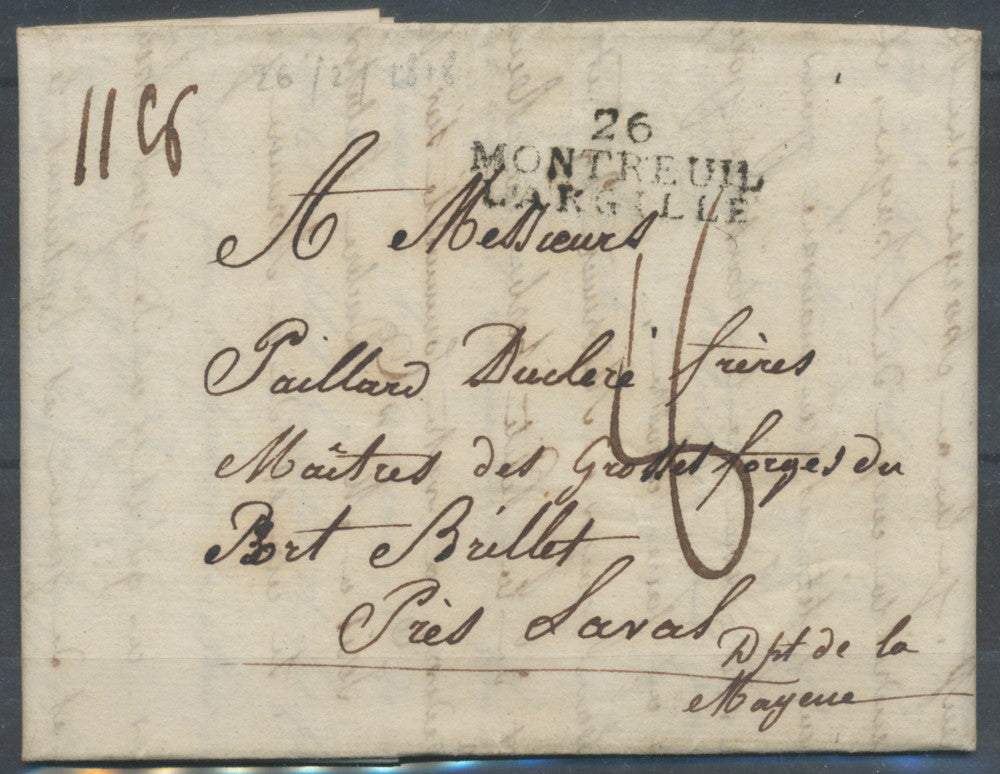 26 / 2 / 1818
26
MONTREUIL
L'ARGILLÉ
A Messieurs
Paillard Ducleré frères
Maîtres des Grosses forges du
Port Brillet
Près Laval
Dpt de la
Mayenne